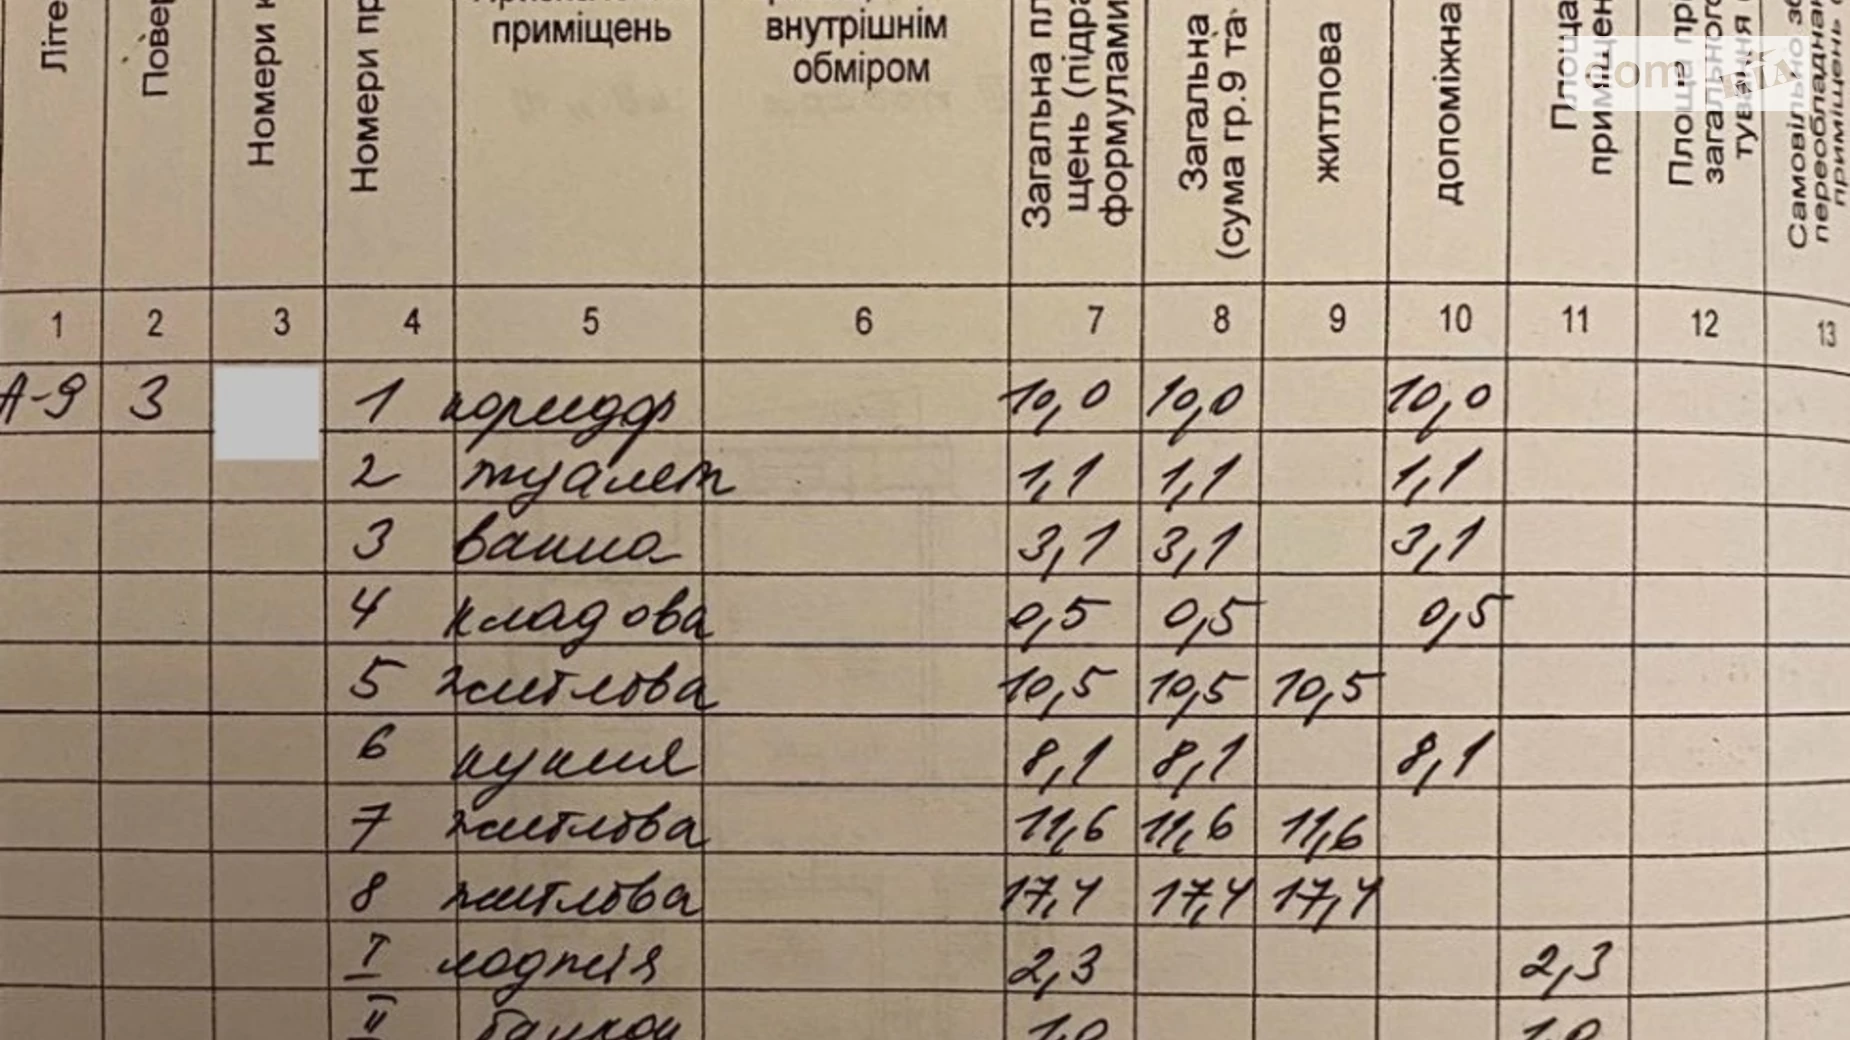 Літе
Повер
Номери к
Номери пр
приміщень
внутрішнім
обміром
Загальна пл
щень (підра
формулами
Загальна
(сума гр.9 та
житлова
допоміжна
Площа
приміщен
Площа пр
загального
тування
Самовільно зб
переобладнан
приміщень
dom RIA
1 2 3 4 5 6 7 8 9 10 11 12 13
А-9 3 1 коридор 10,0 10,0 10,0
2 туалет 1,1 1,1 1,1
3 ванна 3,1 3,1 3,1
4 кладова 0,5 0,5 0,5
5 житлова 10,5 10,5 10,5
6 кухня 8,1 8,1 8,1
7 житлова 11,6 11,6 11,6
8 житлова 17,4 17,4 17,4
I лоджія 2,3 2,3
II балкон 1,0 1,0